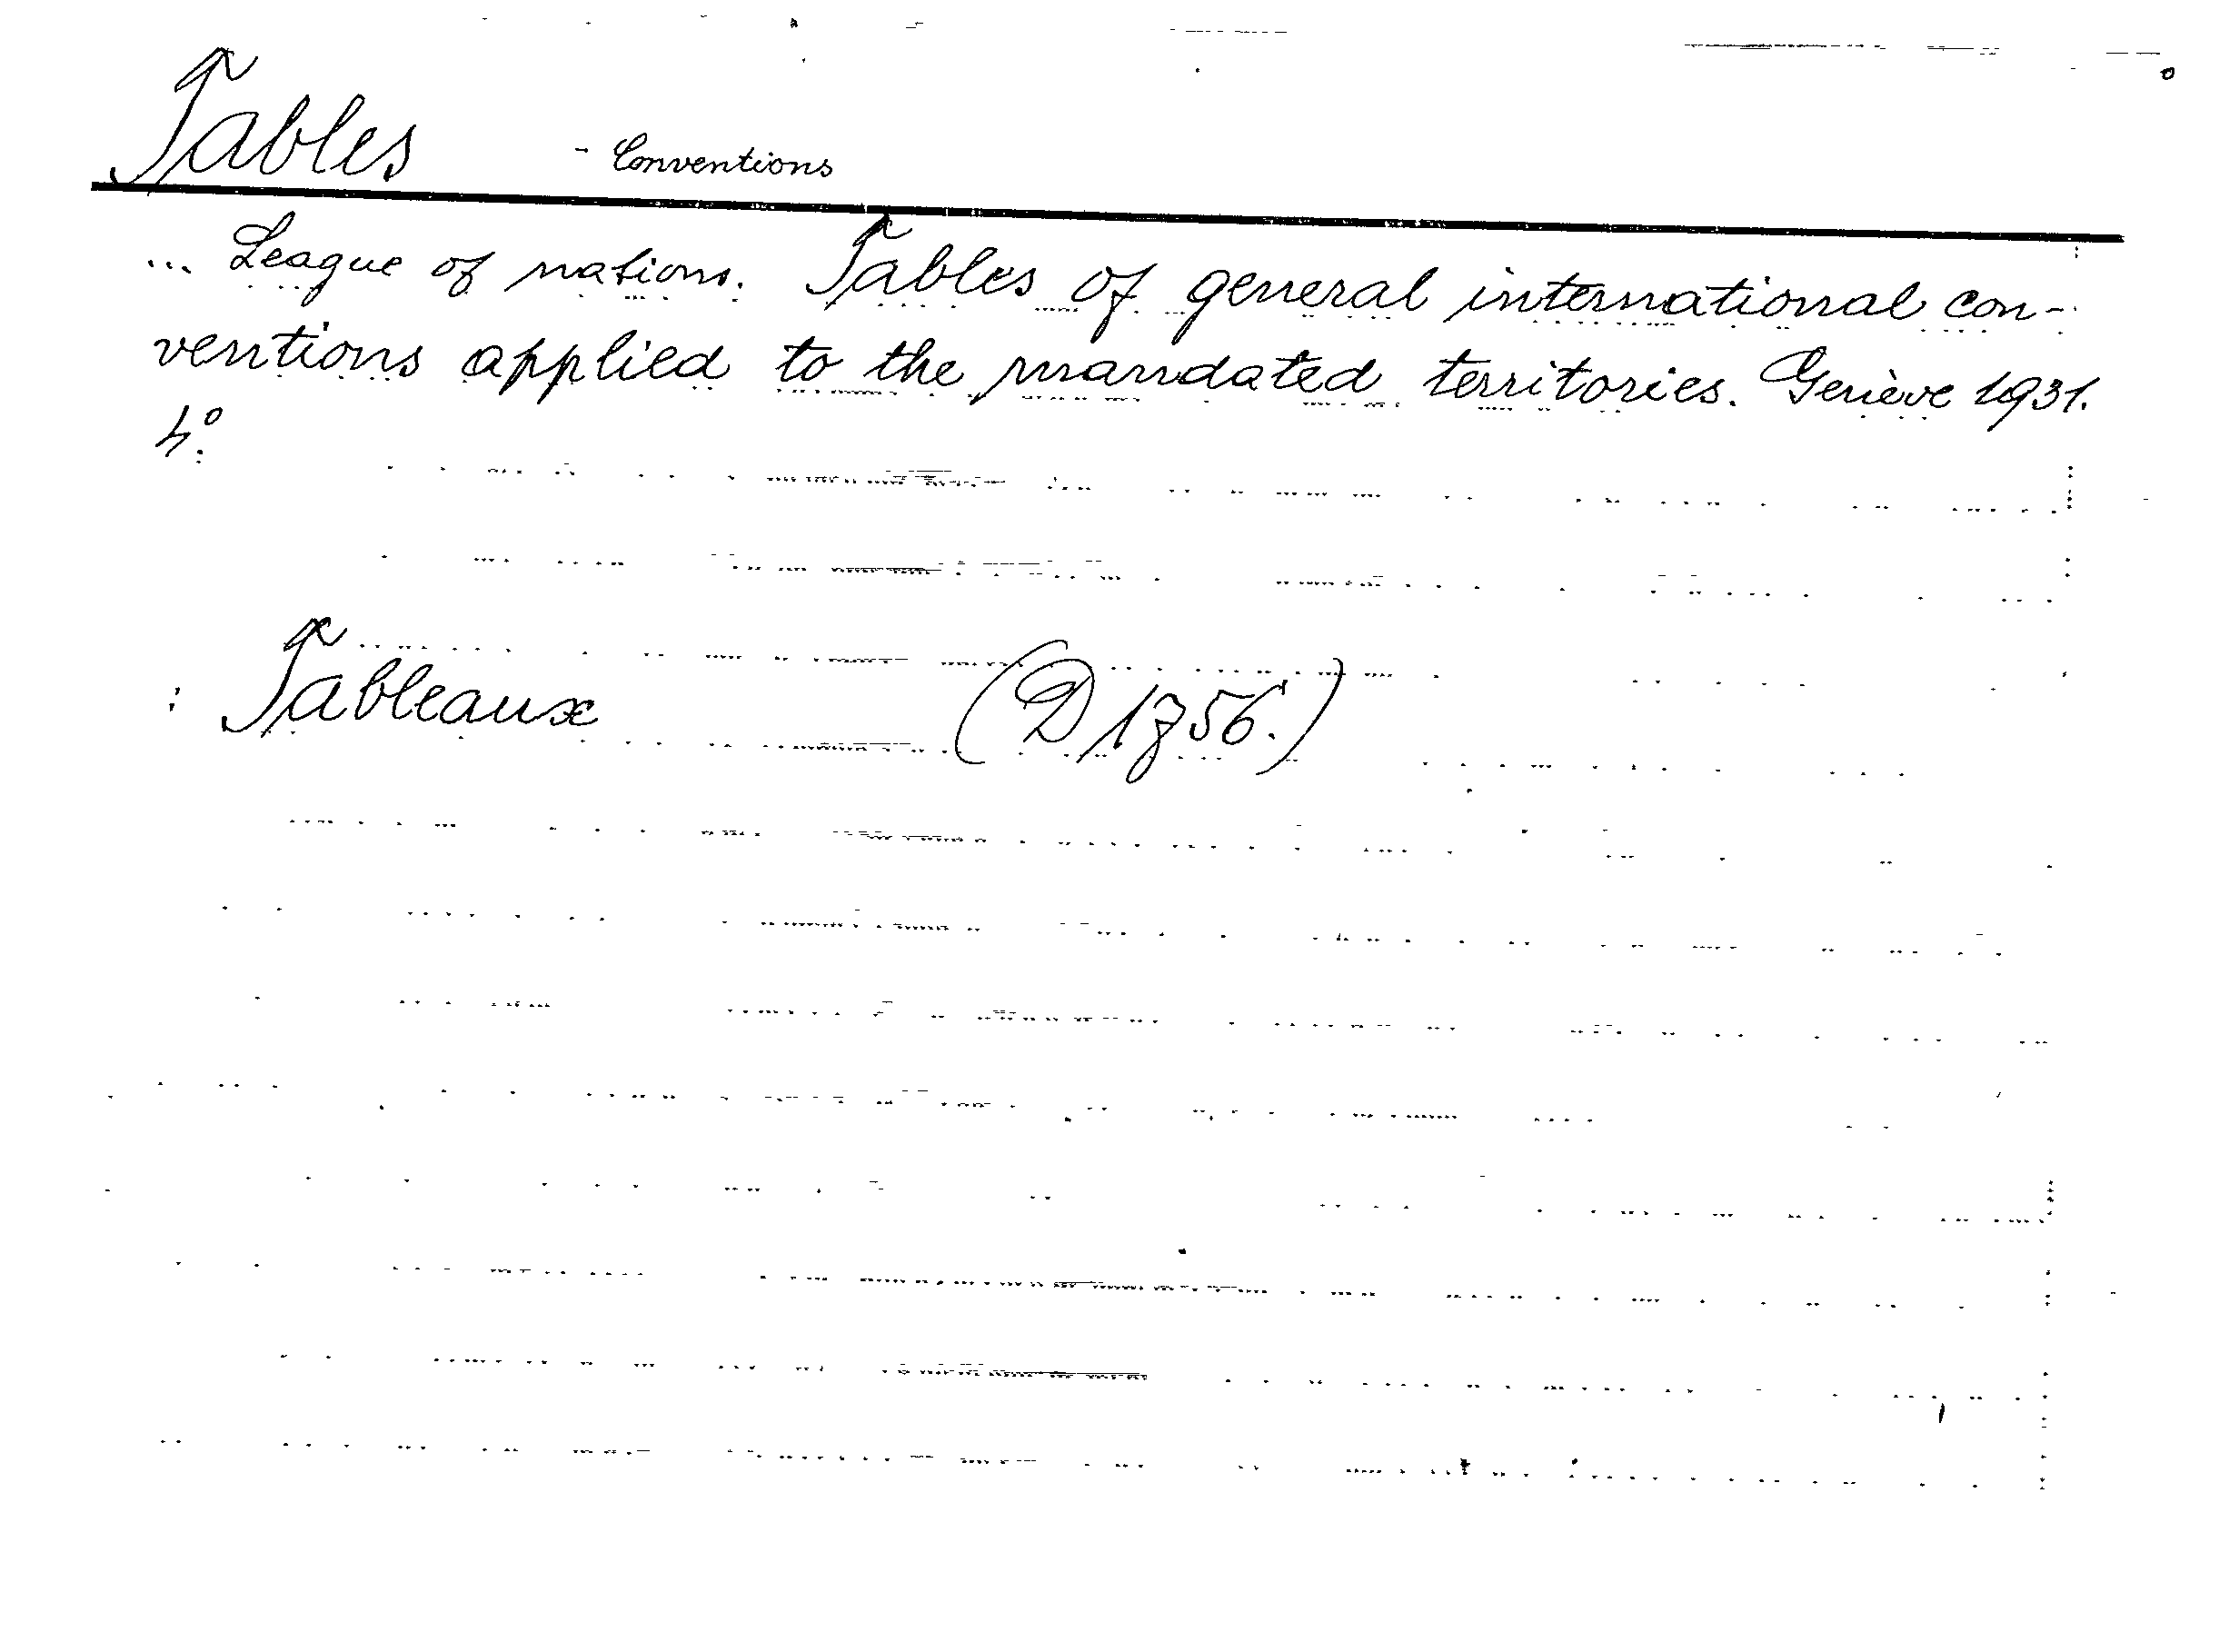 Tables - Conventions
... League of nations. Tables of general international con-
ventions applied to the mandated territories. Genève 1931.
4°.
: Tableaux (D 1756.)